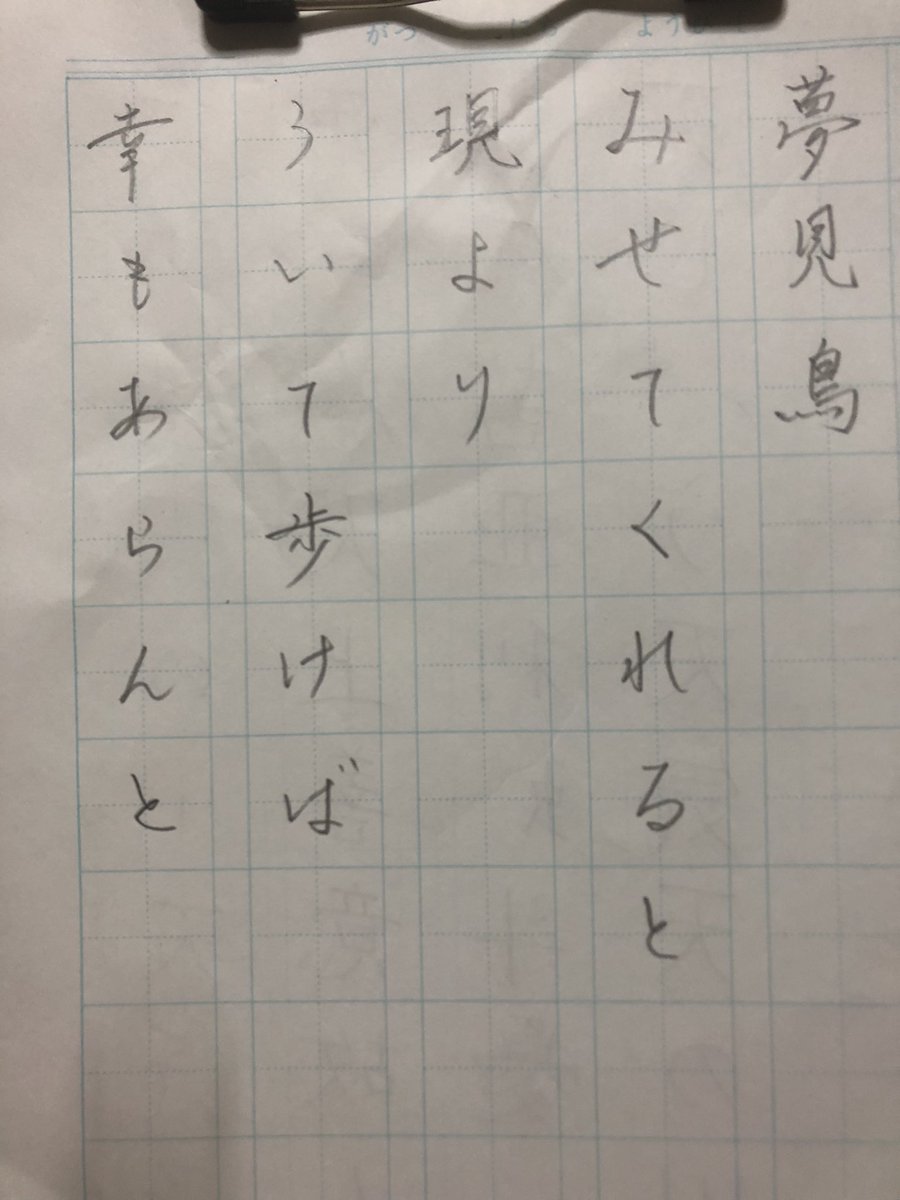 夢見鳥
みせてくれると
現より
ういて歩けば
幸もあらんと